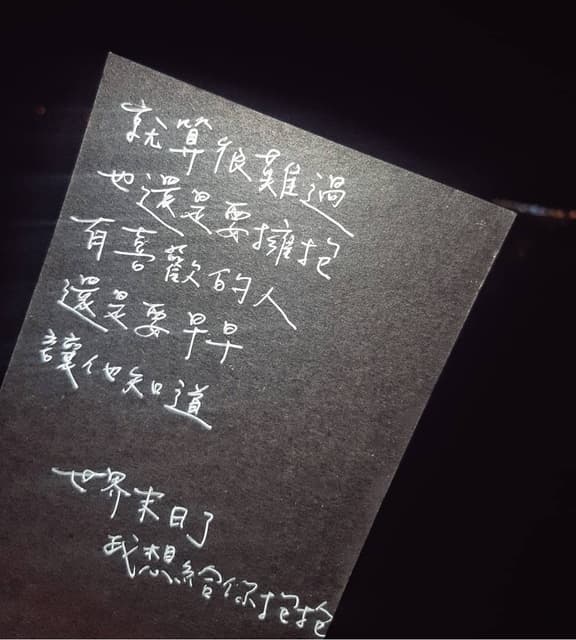 就算很難過
也還是要擁抱
有喜歡的人
還是要早早
讓他知道
世界末日了
我想給你抱抱